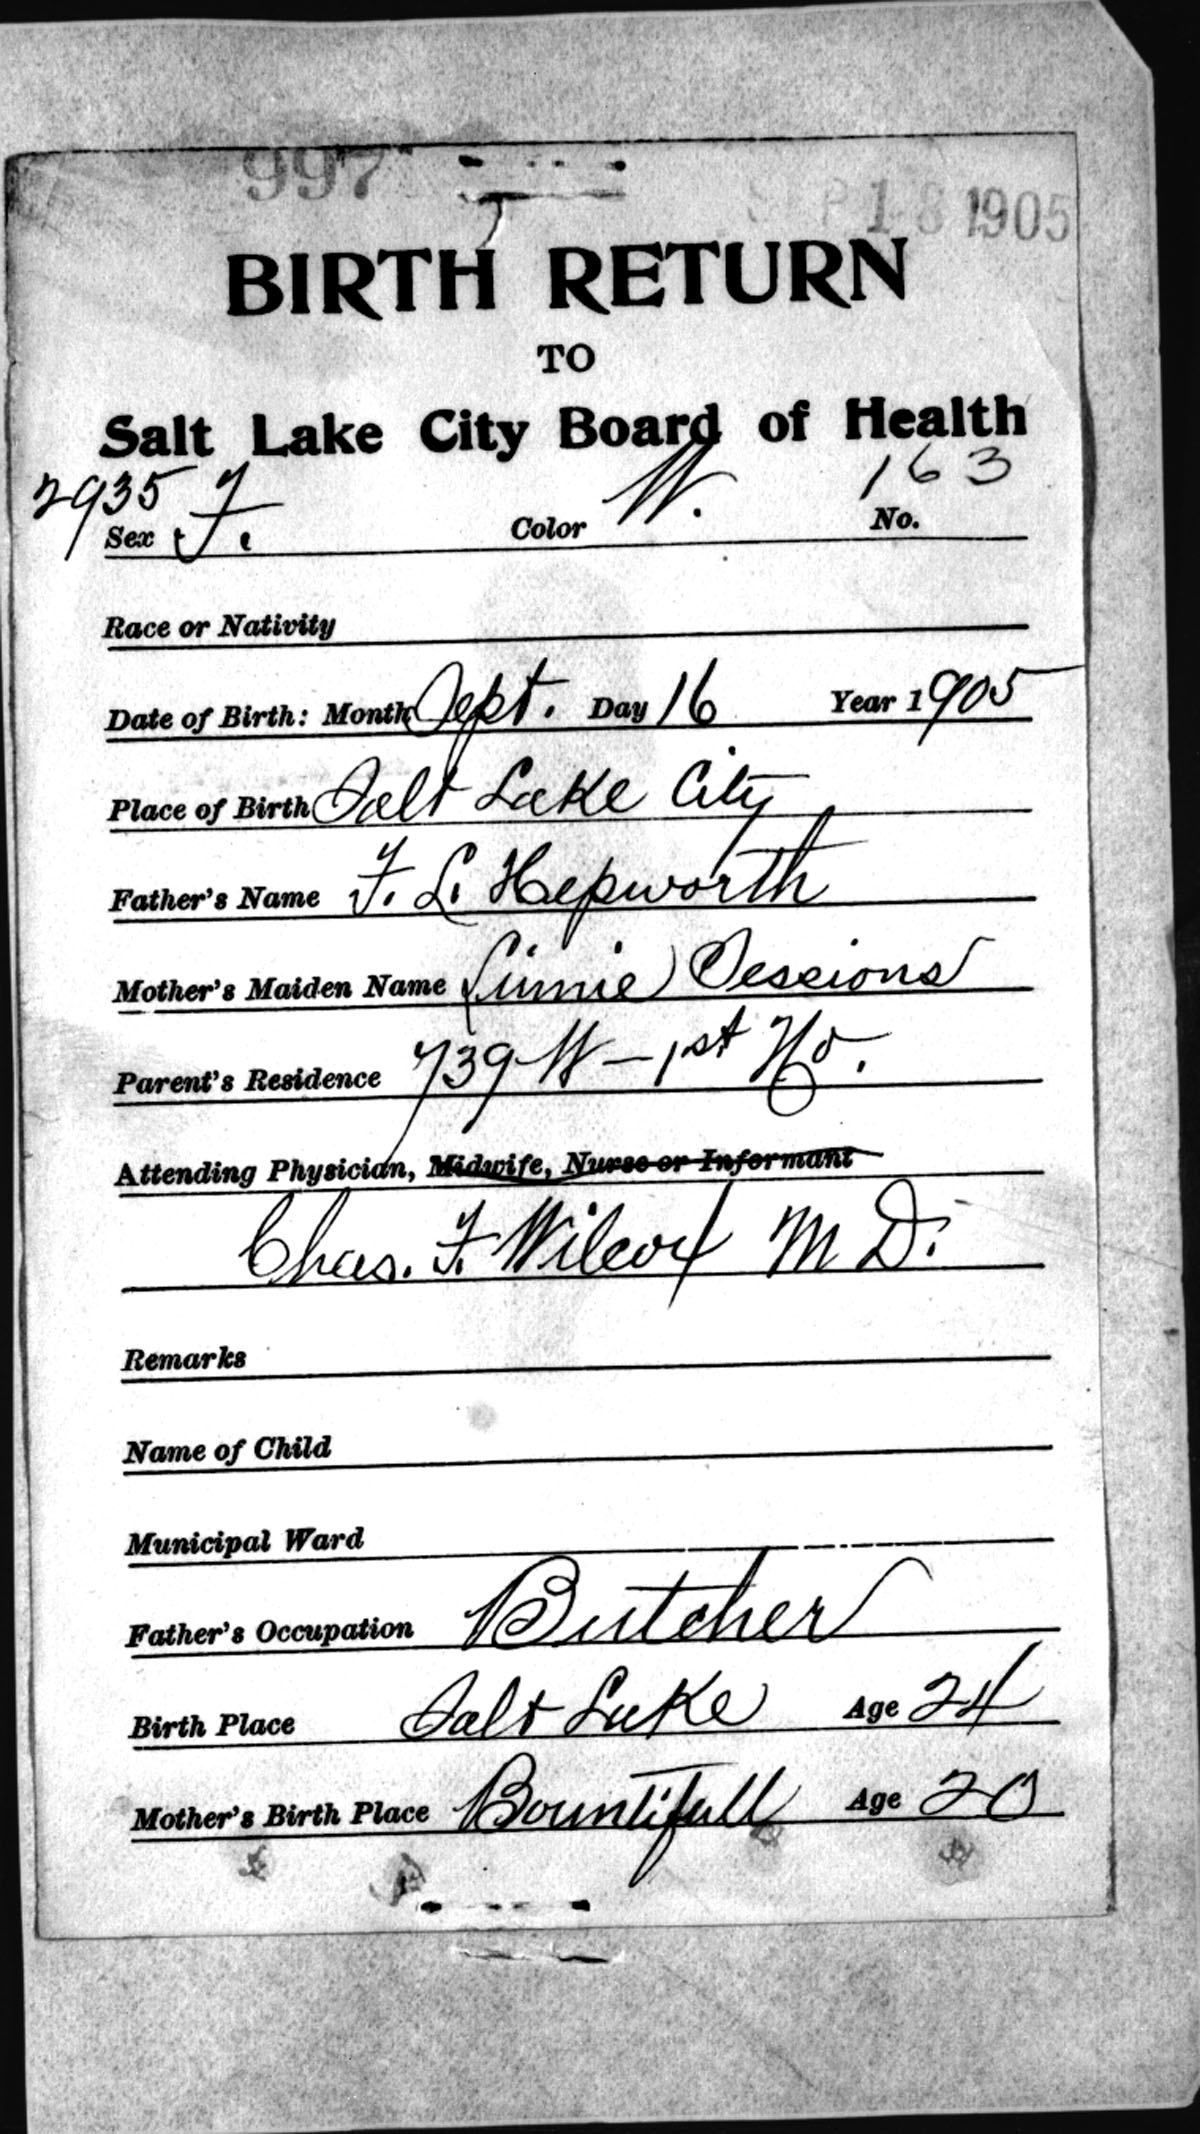 997
SEP 18 1905
BIRTH RETURN
TO
Salt Lake City Board of Health
2935
Sex F. Color W. No. 163
Race or Nativity
Date of Birth: Month Sept. Day 16 Year 1905
Place of Birth Salt Lake City
Father's Name F. L. Hepworth
Mother's Maiden Name Linnie Sessions
Parent's Residence 739 W - 1st No.
Attending Physician, Midwife, Nurse or Informant
Chas. F. Wilcox M D.
Remarks
Name of Child
Municipal Ward
Father's Occupation Butcher
Birth Place Salt Lake Age 24
Mother's Birth Place Bountifull Age 20